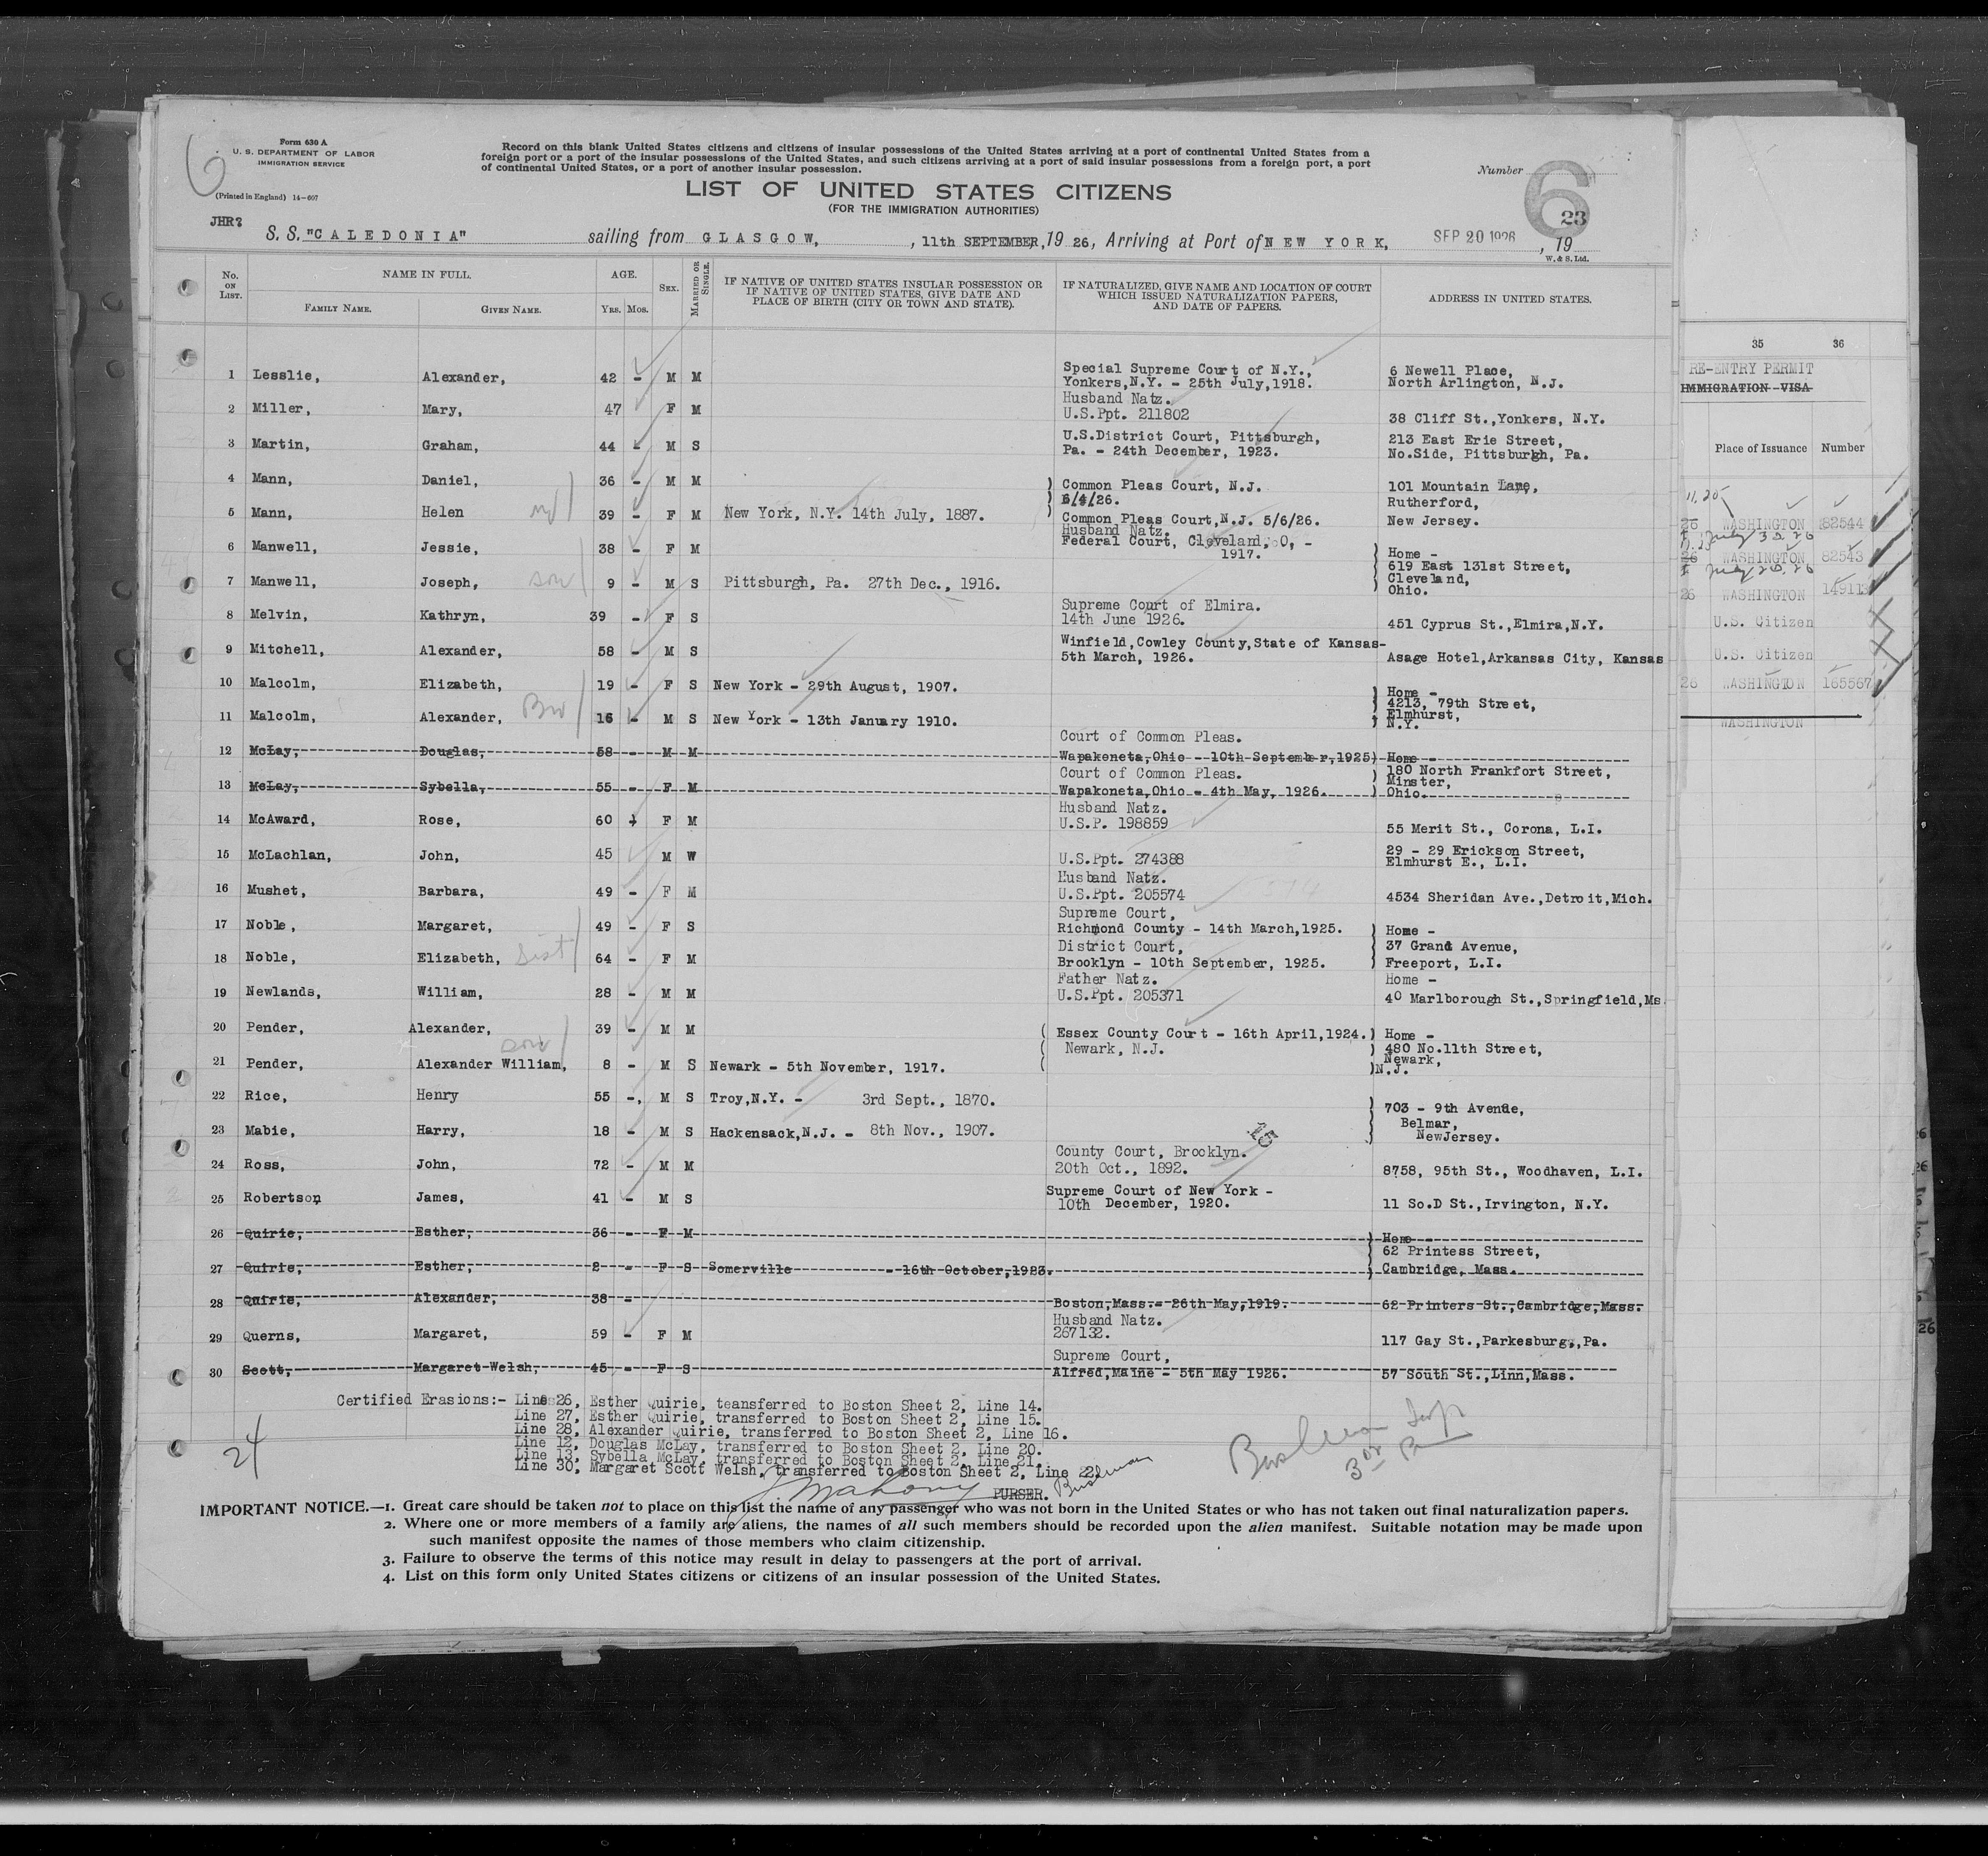 6
Form 630 A
U. S. DEPARTMENT OF LABOR
IMMIGRATION SERVICE
(Printed in England) 14—607
Record on this blank United States citizens and citizens of insular possessions of the United States arriving at a port of continental United States from a
foreign port or a port of the insular possessions of the United States, and such citizens arriving at a port of said insular possessions from a foreign port, a port
of continental United States, or a port of another insular possession.
Number
6
23
LIST OF UNITED STATES CITIZENS
(FOR THE IMMIGRATION AUTHORITIES)
JHR?
S. S. "CALEDONIA" sailing from GLASGOW, , 11th SEPTEMBER, 19 26, Arriving at Port of NEW YORK, SEP 20 1926 , 19
W. & S. Ltd.
No. ON LIST. NAME IN FULL. AGE. SEX. MARRIED OR SINGLE. IF NATIVE OF UNITED STATES INSULAR POSSESSION OR IF NATIVE OF UNITED STATES, GIVE DATE AND PLACE OF BIRTH (CITY OR TOWN AND STATE). IF NATURALIZED, GIVE NAME AND LOCATION OF COURT WHICH ISSUED NATURALIZATION PAPERS, AND DATE OF PAPERS. ADDRESS IN UNITED STATES.
FAMILY NAME. GIVEN NAME. YRS. MOS.
1 Lesslie, Alexander, 42 - M M Special Supreme Court of N.Y., Yonkers,N.Y. - 25th July,1918. 6 Newell Place, North Arlington, N.J.
2 Miller, Mary, 47 F M Husband Natz. U.S.Ppt. 211802 38 Cliff St.,Yonkers, N.Y.
3 Martin, Graham, 44 - M S U.S.District Court, Pittsburgh, Pa. - 24th December, 1923. 213 East Erie Street, No.Side, Pittsburgh, Pa.
4 Mann, Daniel, 36 - M M Common Pleas Court, N.J. 5/4/26. 101 Mountain Lane, Rutherford,
5 Mann, Helen 39 - F M New York, N.Y. 14th July, 1887. Common Pleas Court,N.J. 5/6/26. New Jersey.
6 Manwell, Jessie, 38 - F M Husband Natz. Federal Court, Cleveland, O, - 1917. Home - 619 East 131st Street,
7 Manwell, Joseph, son 9 - M S Pittsburgh, Pa. 27th Dec., 1916. Cleveland, Ohio.
8 Melvin, Kathryn, 39 - F S Supreme Court of Elmira. 14th June 1926. 451 Cyprus St.,Elmira,N.Y.
9 Mitchell, Alexander, 58 - M S Winfield,Cowley County,State of Kansas- 5th March, 1926. Asage Hotel,Arkansas City, Kansas
10 Malcolm, Elizabeth, 19 - F S New York - 29th August, 1907. Home - 4213, 79th Street,
11 Malcolm, Alexander, Bro 16 - M S New York - 13th January 1910. Elmhurst, N.Y.
12 McLay, Douglas, 58 - M M Court of Common Pleas. Wapakoneta,Ohio - 10th September,1925) Home -
13 McLay, Sybella, 55 - F M Court of Common Pleas. Wapakoneta,Ohio - 4th May, 1926. 180 North Frankfort Street, Minster, Ohio.
14 McAward, Rose, 60 F M Husband Natz. U.S.P. 198859 55 Merit St., Corona, L.I.
15 McLachlan, John, 45 M W U.S.Ppt. 274388 29 - 29 Erickson Street, Elmhurst E., L.I.
16 Mushet, Barbara, 49 - F M Husband Natz. U.S.Ppt. 205574 4534 Sheridan Ave.,Detroit,Mich.
17 Noble, Margaret, 49 - F S Supreme Court, Richmond County - 14th March,1925. Home - 37 Grand Avenue,
18 Noble, Elizabeth, Sist 64 - F M District Court, Brooklyn - 10th September, 1925. Freeport, L.I.
19 Newlands, William, 28 - M M Father Natz. U.S.Ppt. 205371 Home - 40 Marlborough St.,Springfield,Ms
20 Pender, Alexander, 39 - M M Essex County Court - 16th April,1924. Newark, N.J. Home - 480 No.11th Street,
21 Pender, Alexander William, son 8 - M S Newark - 5th November, 1917. Newark, N.J.
22 Rice, Henry 55 -, M S Troy,N.Y. - 3rd Sept., 1870. 703 - 9th Avenue,
23 Mabie, Harry, 18 - M S Hackensack,N.J. - 8th Nov., 1907. 15 Belmar, NewJersey.
24 Ross, John, 72 - M M County Court, Brooklyn. 20th Oct., 1892. 8758, 95th St., Woodhaven, L.I.
25 Robertson, James, 41 - M S Supreme Court of New York - 10th December, 1920. 11 So.D St.,Irvington, N.Y.
26 Quirie, Esther, 36 - F M Home - 62 Printess Street,
27 Quirie, Esther, 2 - F S Somerville - 16th October,1923. Cambridge, Mass.
28 Quirie, Alexander, 38 - Boston,Mass.- 26th May,1919. 62 Printers St.,Cambridge,Mass.
29 Querns, Margaret, 59 - F M Husband Natz. 267132. 117 Gay St.,Parkesburg,,Pa.
30 Scott, Margaret Welsh, 45 - F S Supreme Court, Alfred,Maine - 5th May 1925. 57 South St.,Linn,Mass.
Certified Erasions:- Line 26, Esther Quirie, teansferred to Boston Sheet 2, Line 14.
Line 27, Esther Quirie, transferred to Boston Sheet 2, Line 15.
Line 28, Alexander Quirie, transferred to Boston Sheet 2, Line 16.
Line 12, Douglas McLay, transferred to Boston Sheet 2, Line 20.
Line 13, Sybella McLay, transferred to Boston Sheet 2, Line 21.
Line 30, Margaret Scott Welsh, transferred to Boston Sheet 2, Line 22.
24
J Mahony PURSER.
IMPORTANT NOTICE.—1. Great care should be taken not to place on this list the name of any passenger who was not born in the United States or who has not taken out final naturalization papers.
2. Where one or more members of a family are aliens, the names of all such members should be recorded upon the alien manifest. Suitable notation may be made upon
such manifest opposite the names of those members who claim citizenship.
3. Failure to observe the terms of this notice may result in delay to passengers at the port of arrival.
4. List on this form only United States citizens or citizens of an insular possession of the United States.
35 36
RE-ENTRY PERMIT
IMMIGRATION VISA
Place of Issuance Number
26 WASHINGTON 82544
26 WASHINGTON 82543
26 WASHINGTON 149113
U.S. Citizen
U.S. Citizen
26 WASHINGTON 165567
WASHINGTON